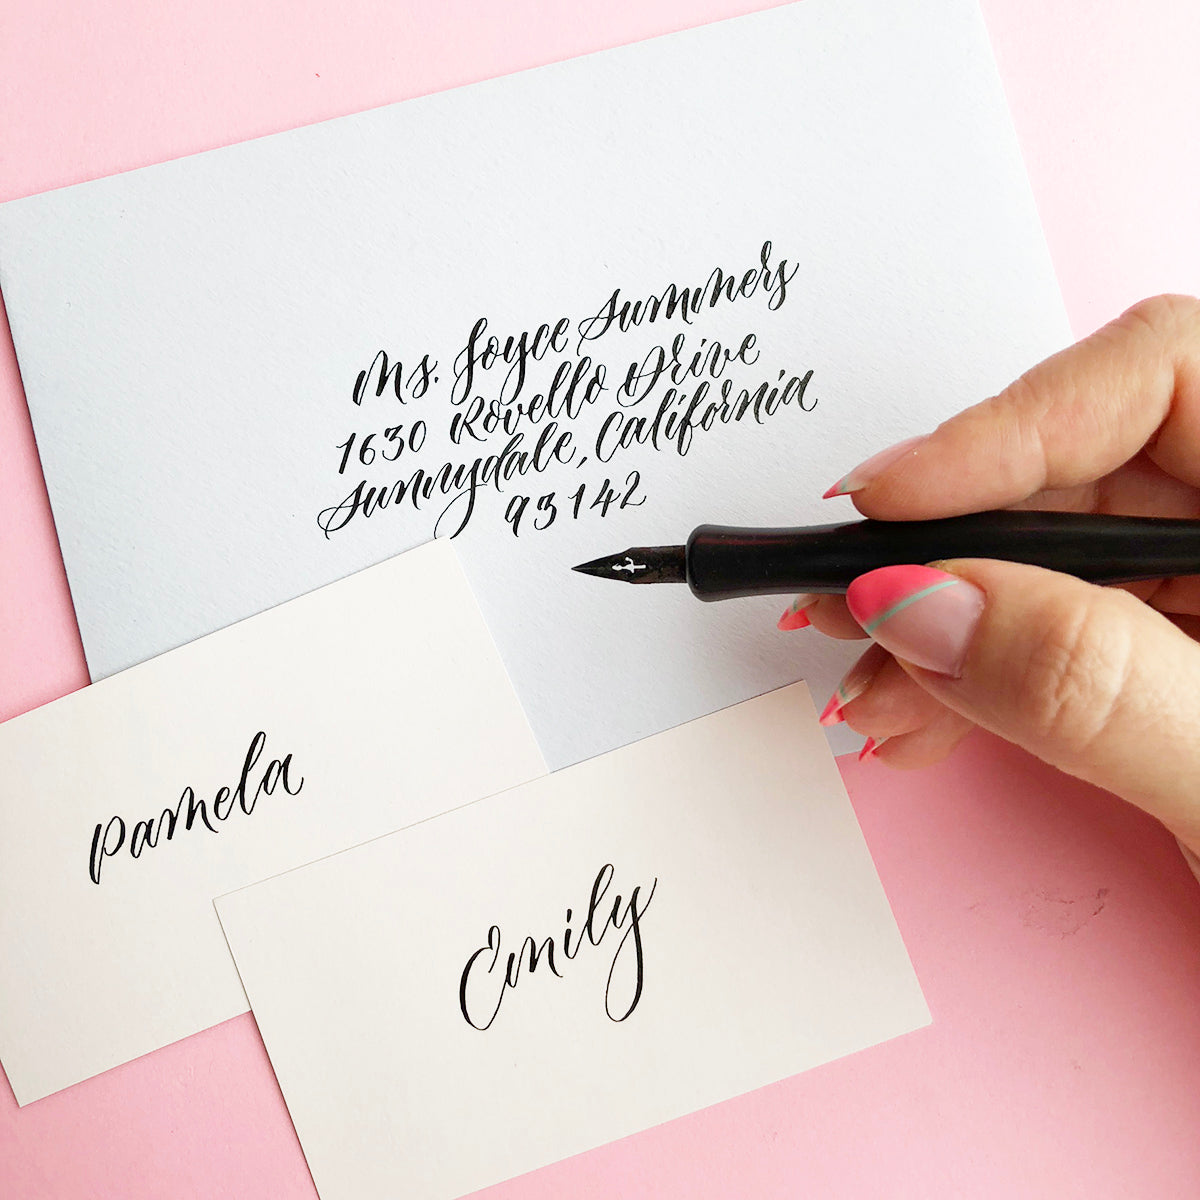 Ms. Joyce Summers
1630 Rovello Drive
Sunnydale, California
93142
Pamela
Emily